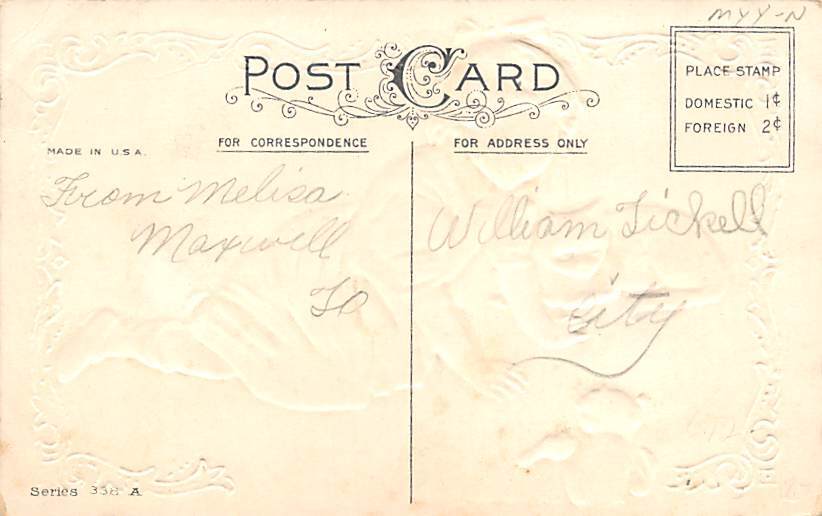 MYY-N
POST CARD
PLACE STAMP
DOMESTIC 1¢
FOREIGN 2¢
MADE IN U.S.A.
FOR CORRESPONDENCE
FOR ADDRESS ONLY
From Melisa
Maxwell
To
William Tickell
City
Series 338 A